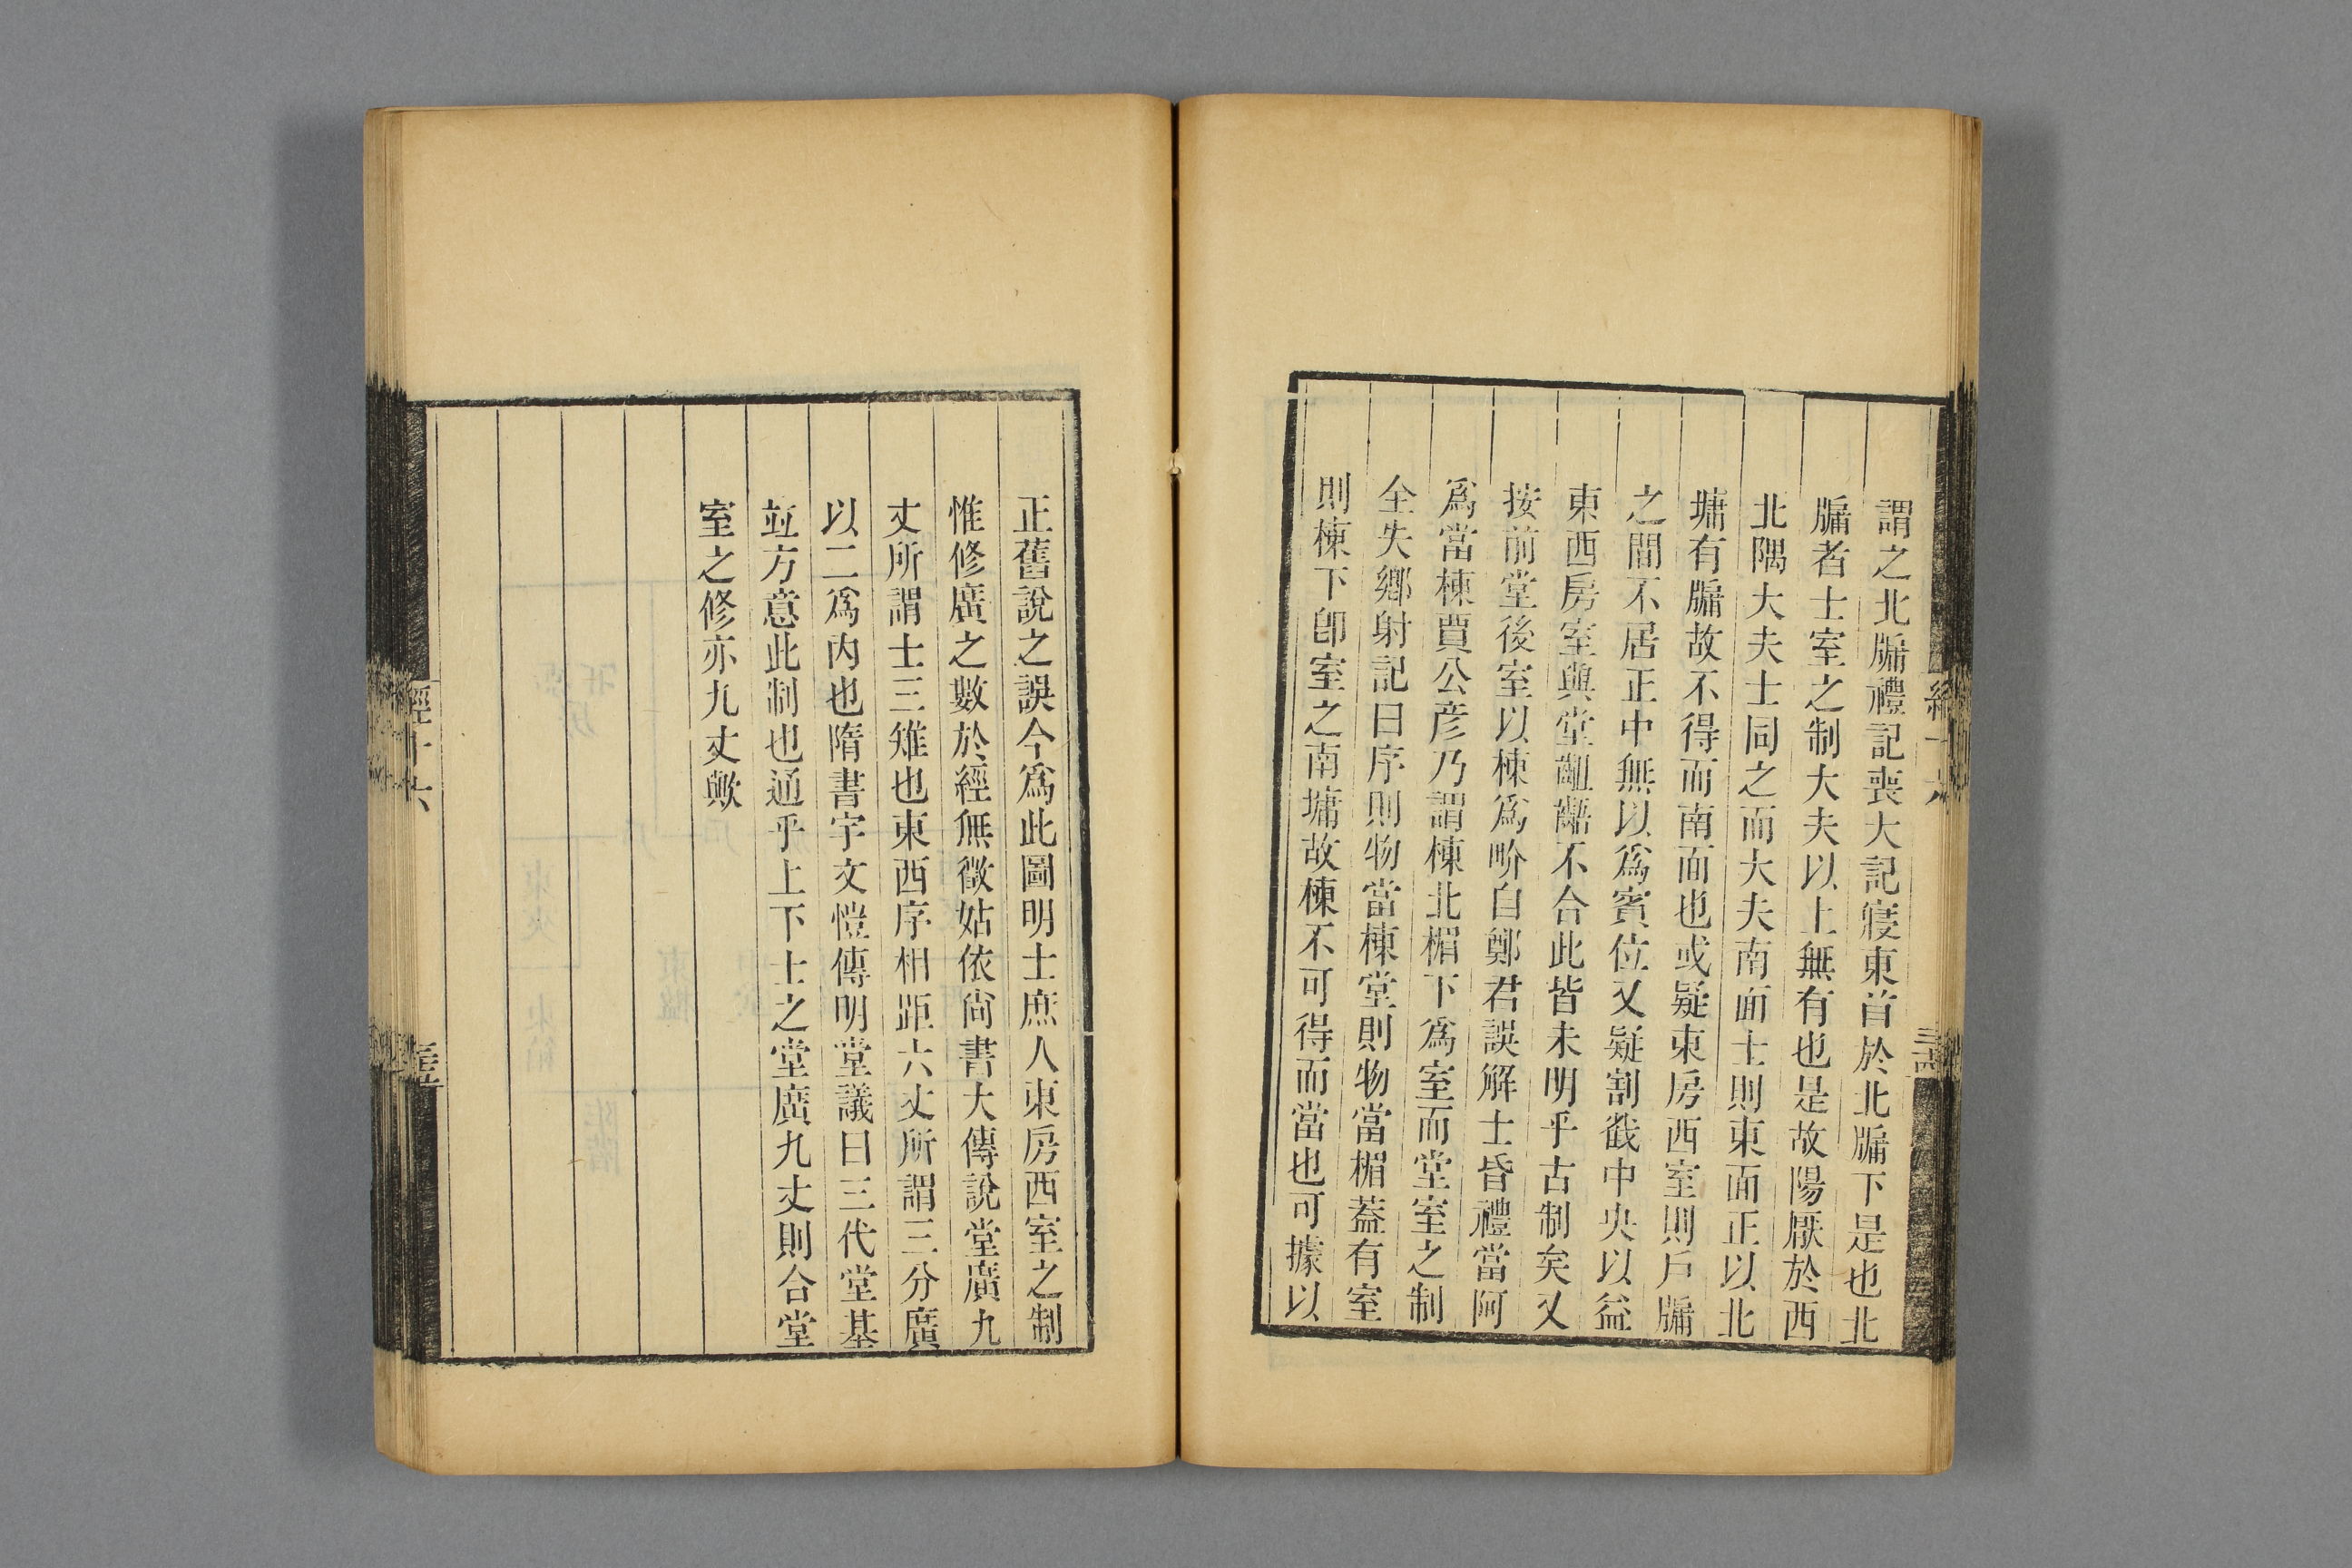 謂之北牖禮記喪大記寢東首於北牖下是也北
牖者士室之制大夫以上無有也是故陽厭於西
北隅大夫士同之而大夫南面士則東面正以北
墉有牖故不得而南面也或疑東房西室則戶牖
之間不居正中無以爲賓位又疑割戳中央以益
東西房室與堂齟齬不合此皆未明乎古制矣又
按前堂後室以棟爲畍自鄭君誤解士昏禮當阿
爲當棟賈公彦乃謂棟北楣下爲室而堂室之制
全失鄉射記曰序則物當棟堂則物當楣葢有室
則棟下卽室之南墉故棟不可得而當也可據以
正舊說之誤今爲此圖明士庶人東房西室之制
惟修廣之數於經無徵姑依尙書大傳說堂廣九
丈所謂士三雉也東西序相距六丈所謂三分廣
以二爲内也隋書宇文愷傳明堂議曰三代堂基
竝方意此制也通乎上下士之堂廣九丈則合堂
室之修亦九丈歟
經十六